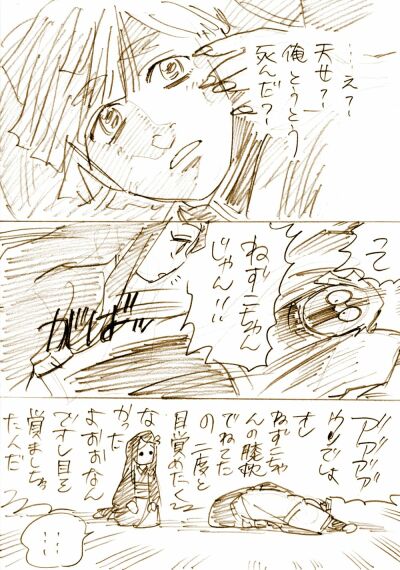 …え?
天女?
俺とうとう
死んだ?
って
ねずこちゃん
じゃん!!
がばっ
アアアア
ウソでしょ
オレ
ねずこちゃ
んの膝枕
でねてた
の
二度と
目覚めたく
な
かった
よおおなん
でオレ目を
覚ましち
たんだ
……